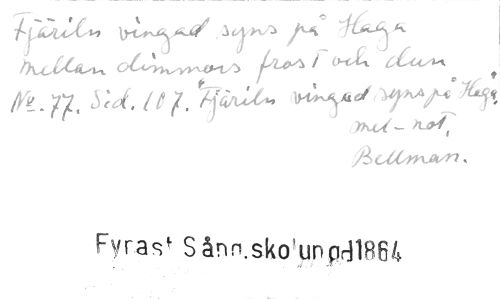 Fjäriln vingad syns på Haga
mellan dimmors frost och dun
No. 77. Sid. 107. "Fjäriln vingad syns på Haga".
mel-not,
Bellman.
Fyrast Sång.skolungd1864